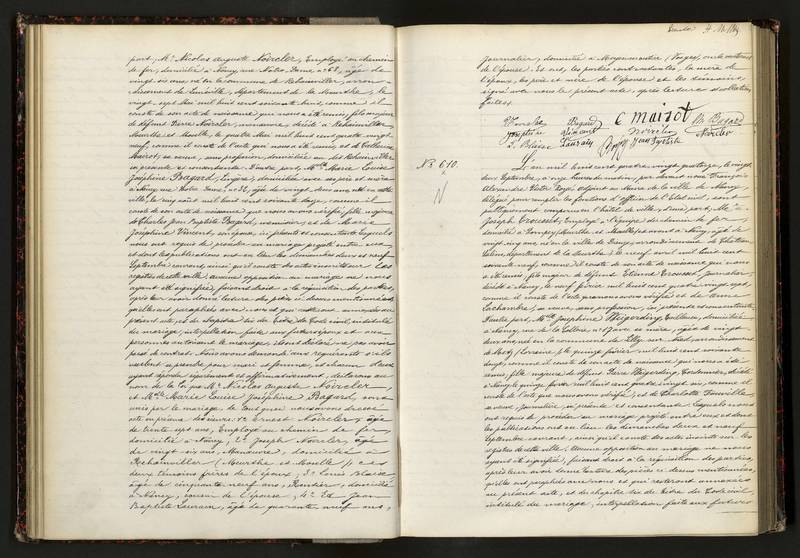 part, Mr. Nicolas Auguste Noircler, Employé au chemin
de fer, domicilié à Nancy, rue Notre Dame, n° 68, âgé de
vingt six ans, né en la commune de Rehainviller, arron-
dissement de Lunéville, département de la Meurthe, le
vingt sept Mai mil huit cent soixante huit, comme il
conste de son acte de naissance qui nous a été remis, fils majeur
de défunt Pierre Noircler, manœuvre, décédé à Rehainviller
Meurthe et Moselle, le quatre Mai mil huit cent quatre vingt
neuf, comme il conste de l'acte qui nous a été remis, et de Catherine
sa veuve, sans profession, domiciliée au dit Rehainviller
ici présente et consentante. D'autre part, Mlle Marie Louise
Joséphine Bagard, Lingère, domiciliée avec ses père et mère
à Nancy, rue Notre Dame, n° 32, âgée de vingt deux ans, née en cette
ville, le cinq août mil huit cent soixante douze, comme il
conste de son acte de naissance que nous avons vérifié, fille majeure
de Charles Jean Baptiste Bagard, menuisier, et de Marie
Joséphine Vincent, ici présents et consentants. Lesquels
nous ont requis de procéder au mariage projeté entre eux
et dont les publications ont eu lieu les dimanches deux et neuf
Septembre courant, ainsi qu'il conste des actes inscrits sur les
registres de cette ville. Aucune opposition au mariage ne nous
ayant été signifiée, faisant droit à la réquisition des parties,
après leur avoir donné lecture des pièces ci dessus mentionnées
qu'elles ont paraphées avec nous et qui resteront annexées au
présent acte, et du chapitre six du titre du Code civil, intitulé
du mariage, interpellation faite aux futurs époux et aux
personnes autorisant le mariage, ils ont déclaré ne pas avoir
passé de contrat. Nous avons demandé aux requérants s'ils
veulent se prendre pour mari et femme, et chacun d'eux
ayant répondu séparément et affirmativement, déclarons au
nom de la loi que Mr. Nicolas Auguste Noircler
et Mlle Marie Louise Joséphine Bagard, sont
unis par le mariage. De tout quoi nous avons dressé
acte en présence de Messieurs: 1° Ernest Noircler, âgé
de trente sept ans, Employé au chemin de fer
domicilié à Nancy, 2° Joseph Noircler, âgé
de vingt six ans, Manœuvre, domicilié à
Rehainviller (Meurthe & Moselle) ces
deux témoins frères de l'époux, 3° Louis Blaise
âgé de cinquante neuf ans, Rentier, domicilié
à Nancy, cousin de l'épouse, 4° Et Jean
Baptiste Laurain, âgé de quarante neuf ans,
journalier, domicilié à Moyenmoutier (Vosges), oncle maternel
de l'épouse. Et ont, les parties contractantes, la mère de
l'époux, les père et mère de l'épouse et les témoins,
signé avec nous le présent acte, après lecture et collation
faites.
Noircler Bagard C maizot M Bagard
Joséphine Vincent Noircler Noircler
L. Blaise Laurain
N° 610.
N
L'an mil huit cent quatre vingt quatorze, le vingt
deux Septembre, à onze heures du matin, par devant nous François
Alexandre Victor adjoint au Maire de la ville de Nancy,
délégué pour remplir les fonctions d'officier de l'état civil, sont
publiquement comparus en l'hôtel de ville, d'une part, Mr.
Joseph Trousset, Employé à l'Équipe du chemin de fer,
domicilié à Pompey (Meurthe et Moselle) avant à Nancy, âgé de
vingt cinq ans, né en la ville de Dieuze, arrondissement de Château
Salins, département de la Meurthe, le neuf avril mil huit cent
soixante neuf, comme il conste de son acte de naissance qui nous
a été remis, fils majeur de défunt Etienne Trousset, Journalier,
décédé à Nancy, le neuf février mil huit cent quatre vingt sept,
comme il conste de l'acte que nous avons vérifié, et de Anne
Lachambre, sa veuve, sans profession, ici présente et consentante.
D'autre part, Mlle Joséphine Weigerding, Tailleuse, domiciliée
à Nancy, rue de la Colline, n° 17 avec sa mère, âgée de vingt
deux ans, née en la commune de arrondissement
de Metz (Lorraine), le quinze février mil huit cent soixante
douze, comme il conste de son acte de naissance qui nous a été
remis, fille majeure de défunt Pierre Weigerding, Cordonnier, décédé
à Nancy, le quinze février mil huit cent quatre vingt six, comme il
conste de l'acte que nous avons vérifié, et de Charlotte
sa veuve, Journalière, ici présente et consentante. Lesquels nous
ont requis de procéder au mariage projeté entre eux, et dont
les publications ont eu lieu les dimanches deux et neuf
Septembre courant, ainsi qu'il conste des actes inscrits sur les
registres de cette ville. Aucune opposition au mariage ne nous
ayant été signifiée, faisant droit à la réquisition des parties,
après leur avoir donné lecture des pièces ci dessus mentionnées,
qu'elles ont paraphées avec nous et qui resteront annexées
au présent acte, et du chapitre six du titre du Code civil
intitulé du mariage, interpellation faite aux futurs